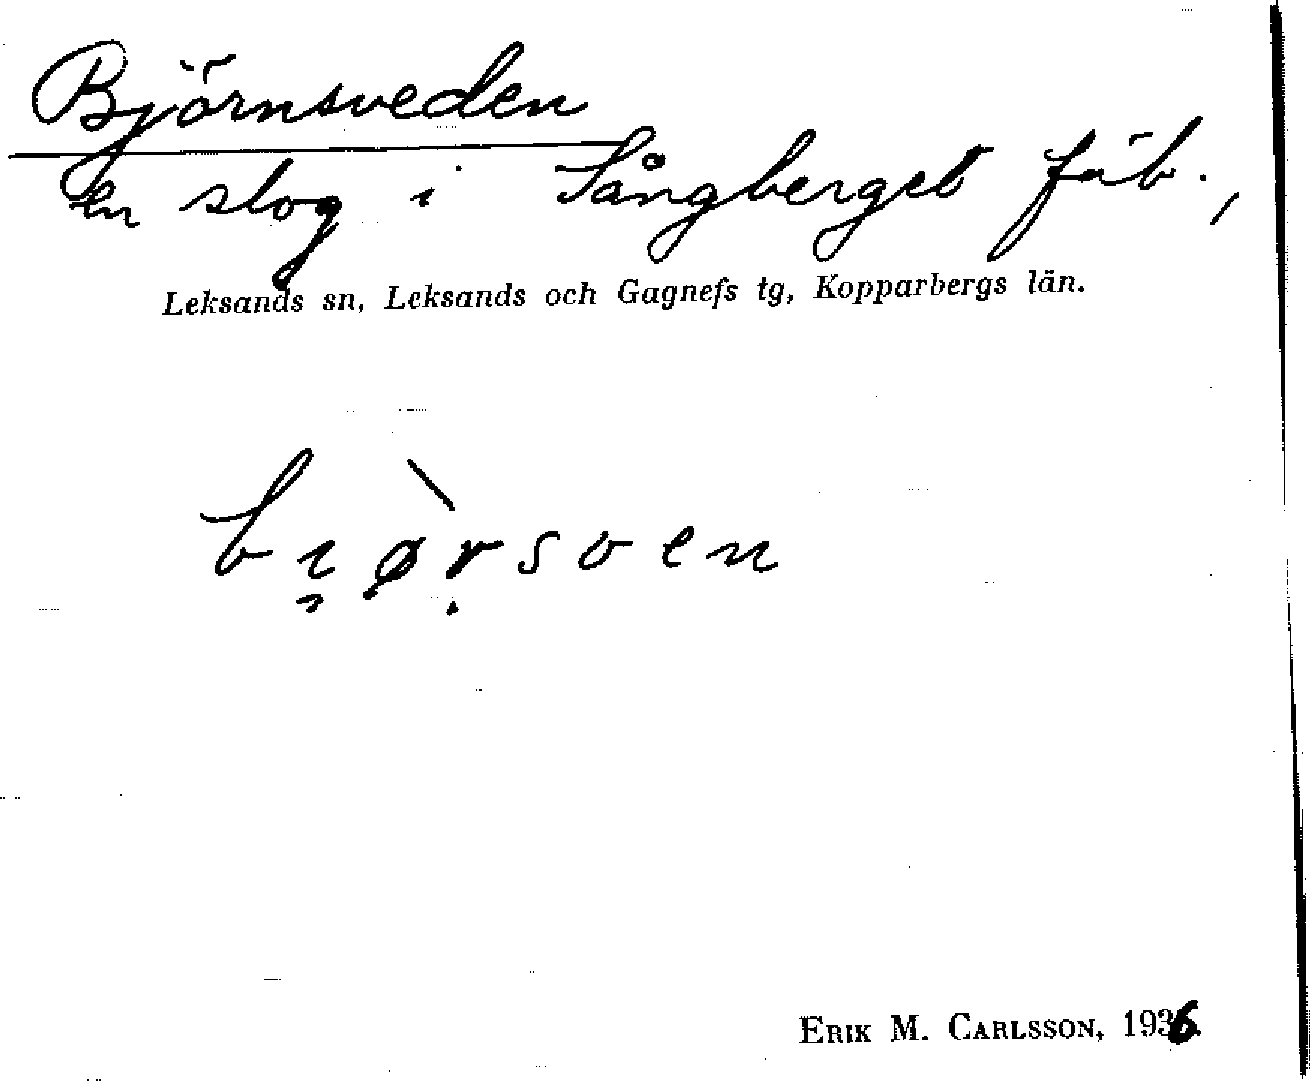 Björnsveden
en slog i Sångberget fäb.,
Leksands sn, Leksands och Gagnefs tg, Kopparbergs län.
bı̯ø̣̀ṛsven
ERIK M. CARLSSON, 1936.